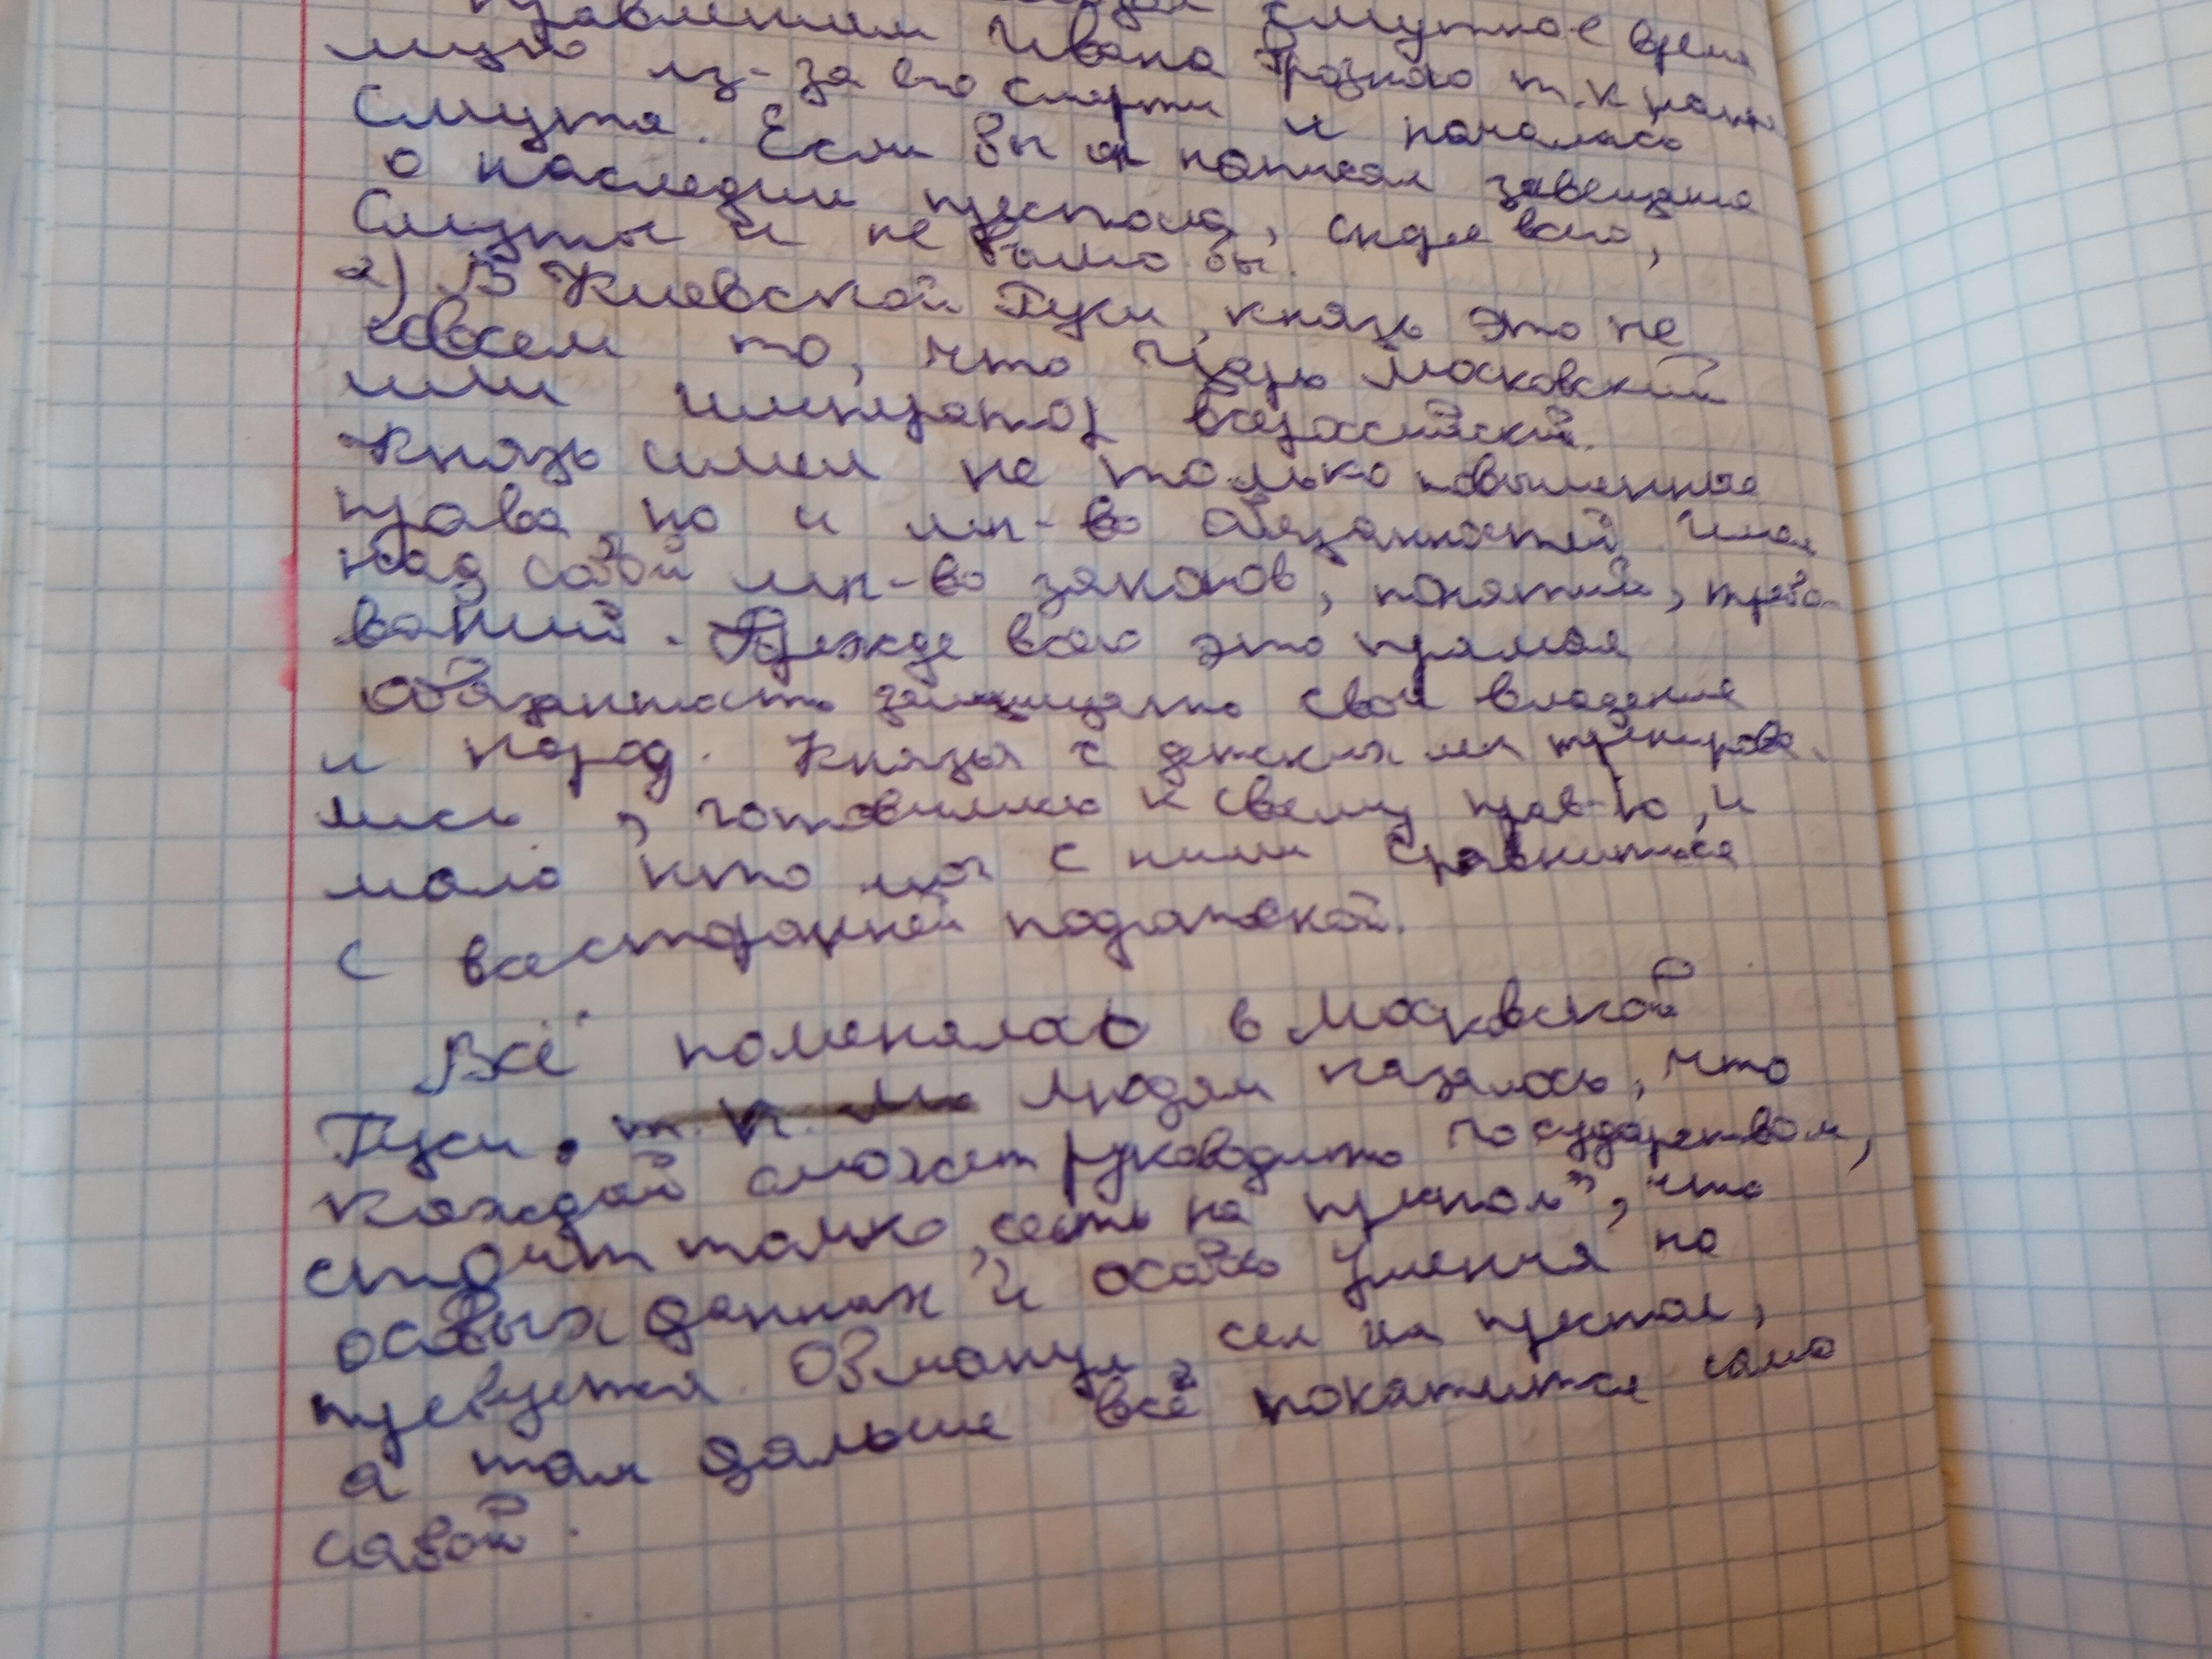 Смутное время
правлением Ивана Грозного т.к
из-за его смерти и началась
Смута. Если бы он написал завещание
о наследии престола, скорее всего,
Смуты и не было бы.
2) В Киевской Руси, князь это не
совсем то, что Царь Московский
или император всероссийский.
Князь имел не только повышенные
права, но и мн-во обязанностей имея
над собой мн-во законов, понятий, требо-
ваний. Прежде всего это прямая
обязанность защищать свои владения
и народ. Князья с детских лет тренирова-
лись, готовились к своему прав-ю, и
мало кто мог с ними сравниться
с всесторонней подготовкой.
Всё поменялось в Московской
Руси. т.к. людям казалось, что
каждой сможет руководить государством,
стоит только „сесть на престол”, что
особых данных и особо умения не
требуется. Обманул, сел на престол,
а там дальше всё покатится само
собой.